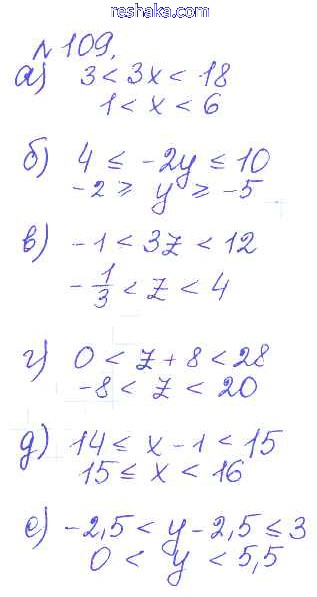 reshaka.com
№109.
а) 3 < 3x < 18
1 < x < 6
б) 4 ≤ -2y ≤ 10
-2 ≥ y ≥ -5
в) -1 < 3z < 12
-1/3 < z < 4
г) 0 < z + 8 < 28
-8 < z < 20
д) 14 ≤ x - 1 < 15
15 ≤ x < 16
е) -2,5 < y - 2,5 ≤ 3
0 < y < 5,5